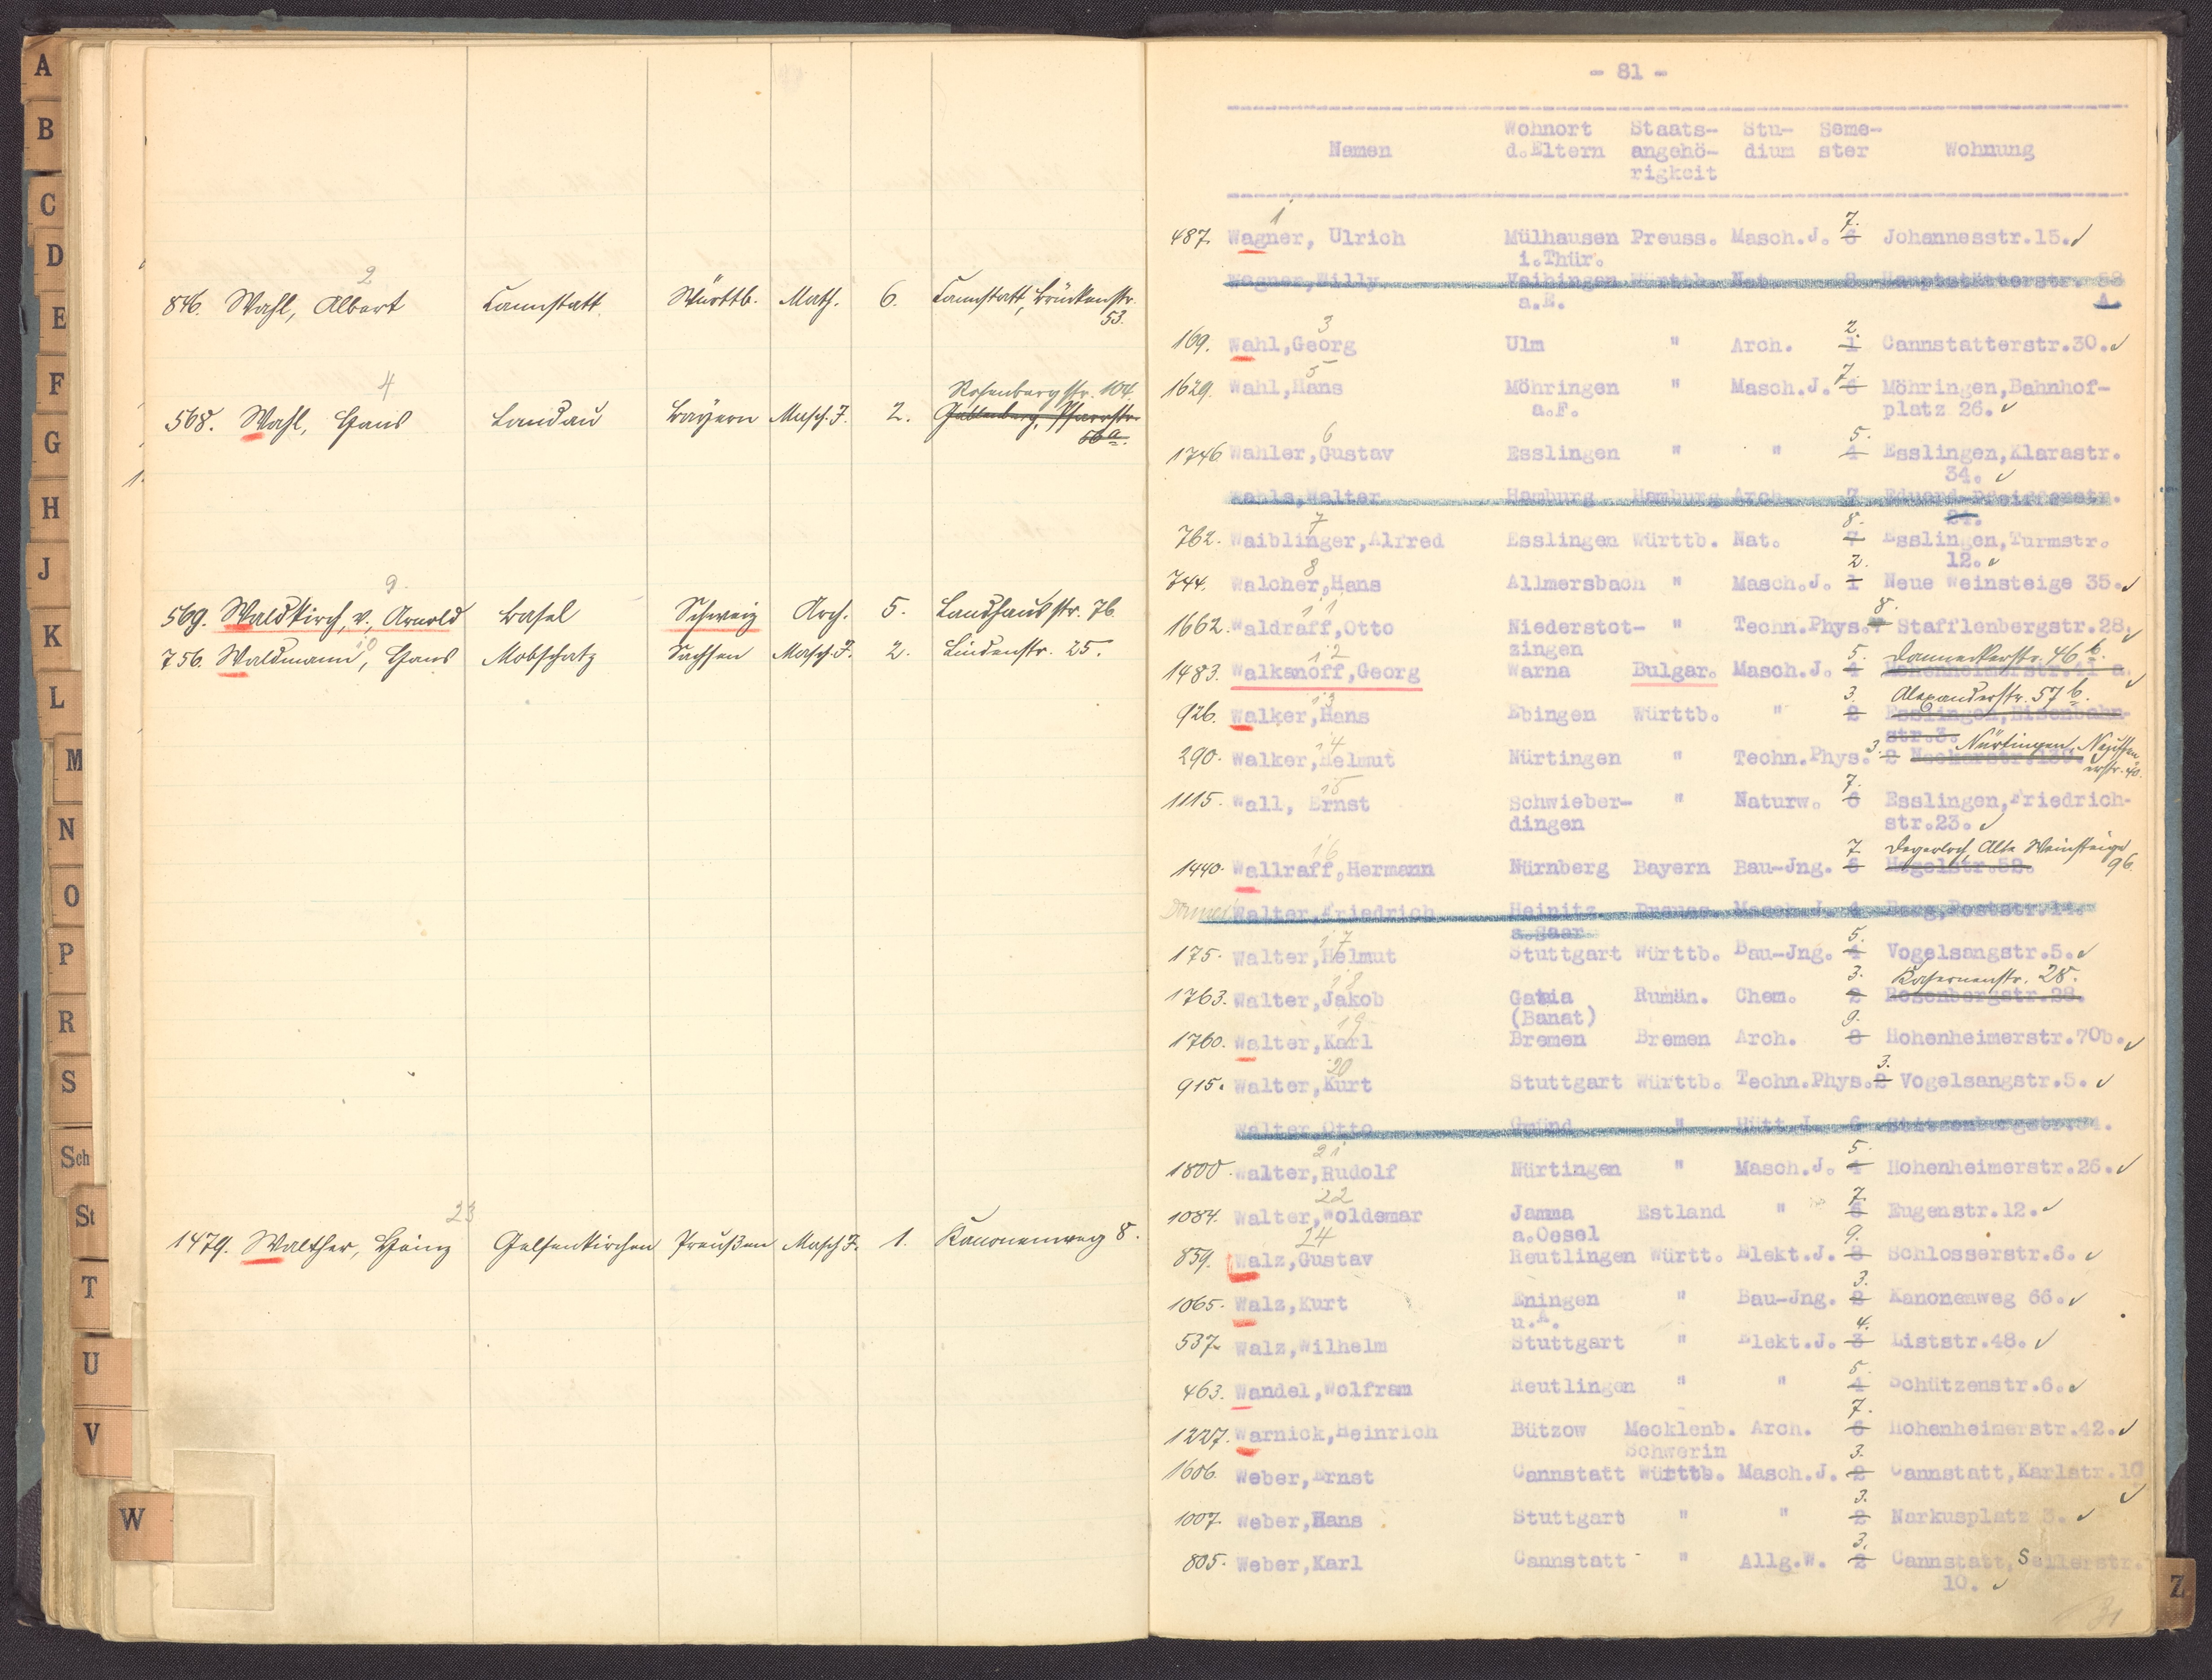 A
B
C
D
E
F
G
H
J
K
L
M
N
O
P
R
S
Sch
St
T
U
V
W
2
846. Wahl, Albert Cannstatt. Württb. Math. 6. Cannstatt, Brückenstr.
53.
4
Rosenbergstr. 104.
568. Wahl, Hans Landau Bayern Masch.J. 2. Gablenberg, Pfarrstr.
56a.
9.
569. Waldkirch, v., Arnold Basel Schweiz Arch. 5. Landhausstr. 76.
10
756. Waldmann, Hans Mobschatz Sachsen Masch.J. 2. Lindenstr. 25.
23
1479. Walther, Heinz Gelsenkirchen Preußen Masch.J. 1. Kanonenweg 8.
- 81 -
Wohnort Staats- Stu- Seme-
Namen d.Eltern angehö- dium ster Wohnung
rigkeit
1 7.
487. Wagner, Ulrich Mülhausen Preuss. Masch.J. 6 Johannesstr.15.✓
i.Thür.
Wagner,Willy Vaihingen Württb. Nat. 8 Hauptstätterstr. 58
a.E. A.
3 2.
169. Wahl,Georg Ulm " Arch. 1 Cannstatterstr.30.✓
5 7.
1629. Wahl,Hans Möhringen " Masch.J. 6 Möhringen,Bahnhof-
a.F. platz 26.✓
6 5.
1746 Wahler,Gustav Esslingen " " 4 Esslingen,Klarastr.
34.✓
Wahls,Walter Hamburg Hamburg Arch. 7 Eduard-Pfeifferstr.
24.
7 8.
762. Waiblinger,Alfred Esslingen Württb. Nat. 7 Esslingen,Turmstr.
12.✓
8 2.
744. Walcher,Hans Allmersbach " Masch.J. 1 Neue Weinsteige 35.✓
11 8.
1662. Waldraff,Otto Niederstot- " Techn.Phys. 7 Stafflenbergstr.28.✓
zingen
12 5. Danneckerstr. 46b.
1483. Walkanoff,Georg Warna Bulgar. Masch.J. 4 Hohenheimerstr.41 a.✓
13 3. Alexanderstr. 57b.
926. Walker,Hans Ebingen Württb. " 2 Esslingen,Eisenbahn-
str.3.
14 3. Nürtingen, Neuffen-
290. Walker,Helmut Nürtingen " Techn.Phys. 2 Neckarstr.130.
erstr. 40.
15 7.
1115. Wall, Ernst Schwieber- " Naturw. 6 Esslingen,Friedrich-
dingen str.23.✓
16 7. Degerloch, Alte Weinsteige
1440. Wallraff,Hermann Nürnberg Bayern Bau-Jng. 6 Hegelstr.52. 96.
Walter,Friedrich Heinitz Preuss. Masch.J. 4 Berg,Poststr.14.
a.Saar
17 5.
175. Walter,Helmut Stuttgart Württb. Bau-Jng. 4 Vogelsangstr.5.✓
18 3. Kasernenstr. 28.
1763. Walter,Jakob Gataia Rumän. Chem. 2 Rosenbergstr.28.
(Banat)
19 9.
1760. Walter,Karl Bremen Bremen Arch. 8 Hohenheimerstr.70b.✓
20 3.
915. Walter,Kurt Stuttgart Württb. Techn.Phys. 2 Vogelsangstr.5.✓
Walter,Otto Gmünd " Hütt.J. 6
21 5.
1800. Walter,Rudolf Nürtingen " Masch.J. 4 Hohenheimerstr.26.✓
22 7.
1084. Walter,Woldemar Jamma Estland " 6 Eugenstr.12.✓
a.Oesel
24 9.
859. Walz,Gustav Reutlingen Württ. Elekt.J. 8 Schlosserstr.6.✓
3.
1065. Walz,Kurt Eningen " Bau-Jng. 2 Kanonenweg 66.✓
u.A.
4.
537. Walz,Wilhelm Stuttgart " Elekt.J. 3 Liststr.48.✓
5.
463. Wandel,Wolfram Reutlingen " " 4 Schützenstr.6.✓
7.
1227. Warnick,Heinrich Bützow Mecklenb. Arch. 6 Hohenheimerstr.42.✓
Schwerin
3.
1606. Weber,Ernst Cannstatt Württb. Masch.J. 2 Cannstatt,Karlstr.10
✓
3.
1007. Weber,Hans Stuttgart " " 2 Markusplatz 3.✓
3.
805. Weber,Karl Cannstatt " Allg.W. 2 Cannstatt,Seilerstr.
10.✓
Z